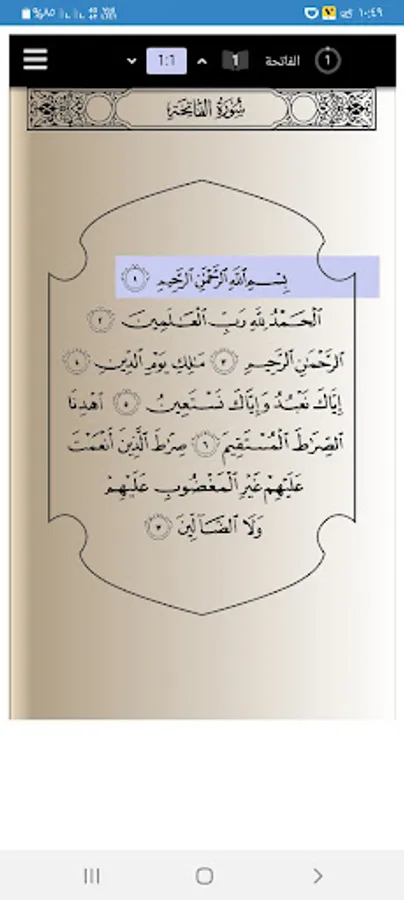 ١٠:٤٩
%٨٥
1 الفاتحة 1 1:1
سُورَةُ الفَاتِحَةِ
بِسۡمِ ٱللَّهِ ٱلرَّحۡمَٰنِ ٱلرَّحِيمِ ١
ٱلۡحَمۡدُ لِلَّهِ رَبِّ ٱلۡعَٰلَمِينَ ٢
ٱلرَّحۡمَٰنِ ٱلرَّحِيمِ ٣ مَٰلِكِ يَوۡمِ ٱلدِّينِ ٤
إِيَّاكَ نَعۡبُدُ وَإِيَّاكَ نَسۡتَعِينُ ٥ ٱهۡدِنَا
ٱلصِّرَٰطَ ٱلۡمُسۡتَقِيمَ ٦ صِرَٰطَ ٱلَّذِينَ أَنۡعَمۡتَ
عَلَيۡهِمۡ غَيۡرِ ٱلۡمَغۡضُوبِ عَلَيۡهِمۡ
وَلَا ٱلضَّآلِّينَ ٧